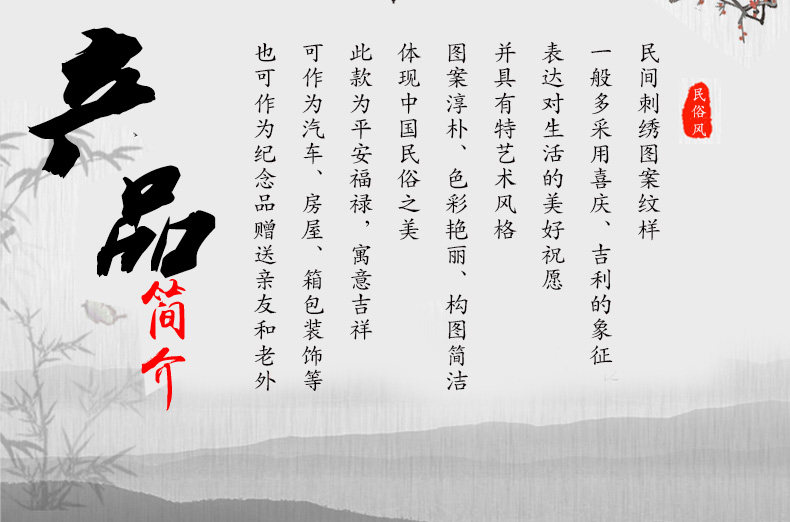 民俗风
民间刺绣图案纹样
一般多采用喜庆、吉利的象征
表达对生活的美好祝愿
并具有特艺术风格
图案淳朴、色彩艳丽、构图简洁
体现中国民俗之美
此款为平安福禄，寓意吉祥
可作为汽车、房屋、箱包装饰等
也可作为纪念品赠送亲友和老外
产品
简介